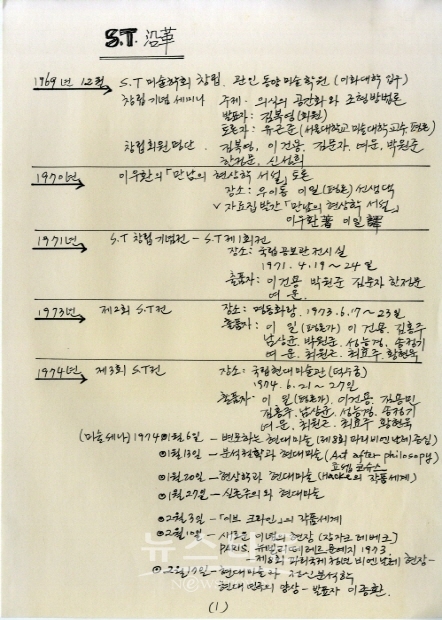 S.T. 沿革
1969년 12월 S.T 미술학회 창립. 관인 동양미술학원 (이화대학 입구)
창립기념 세미나 주제 · 의식의 공간화와 조형방법론
발표자 : 김복영 (회원)
토론자 : 유근준 (서울대학교 미술대학 교수, 평론)
창립회원 명단 · 김복영, 이건용, 김문자, 여운, 박원준
한정문, 신성희
1970년 이우환의 「만남의 현상학 서설」 토론
장소 : 우이동 이일 (평론) 선생댁
자료집 발간 「만남의 현상학 서설」
이우환 著 이일 譯
1971년 S.T 창립기념전 - S.T 제1회전
장소 : 국립공보관 전시실
1971. 4. 19 ~ 24일
출품자 : 이건용 박원준 김문자 한정문
여운
1973년 제2회 S.T전 장소 : 명동화랑, 1973. 6. 17 ~ 23일
출품자 : 이 일 (평론가) 이건용, 김홍주
남상균, 박원준, 성능경, 송정기
여운, 최원근, 최효주, 황현욱
1974년 제3회 S.T전 장소 : 국립현대미술관 (덕수궁)
1974. 6. 21 ~ 27일
출품자 : 이 일 (평론가), 이건용, 김용민
김홍주, 남상균, 성능경, 송정기
여운, 최원근, 최효주 황현욱
(미술세미나) 1974 1월 6일 - 변모하는 현대미술 (제8회 파리비엔날레 중심)
1월 13일 - 분석철학과 현대미술 (Art after philosophy)
요셉 코슈스
1월 20일 - 현상학과 현대미술 (Hacke의 작품세계)
1월 27일 - 실존주의와 현대미술
2월 3일 - 「이브 크라인」의 작품세계
2월 10일 - 새로운 이념의 현장 (장자크 레베크)
PARIS, 1973.
제8회 파리국제청년비엔날레 현장 -
2월 17일 - 현대미술과 정신분석학
현대 민족의 양상 - 발표자 이종환.
(1)
뉴스
News